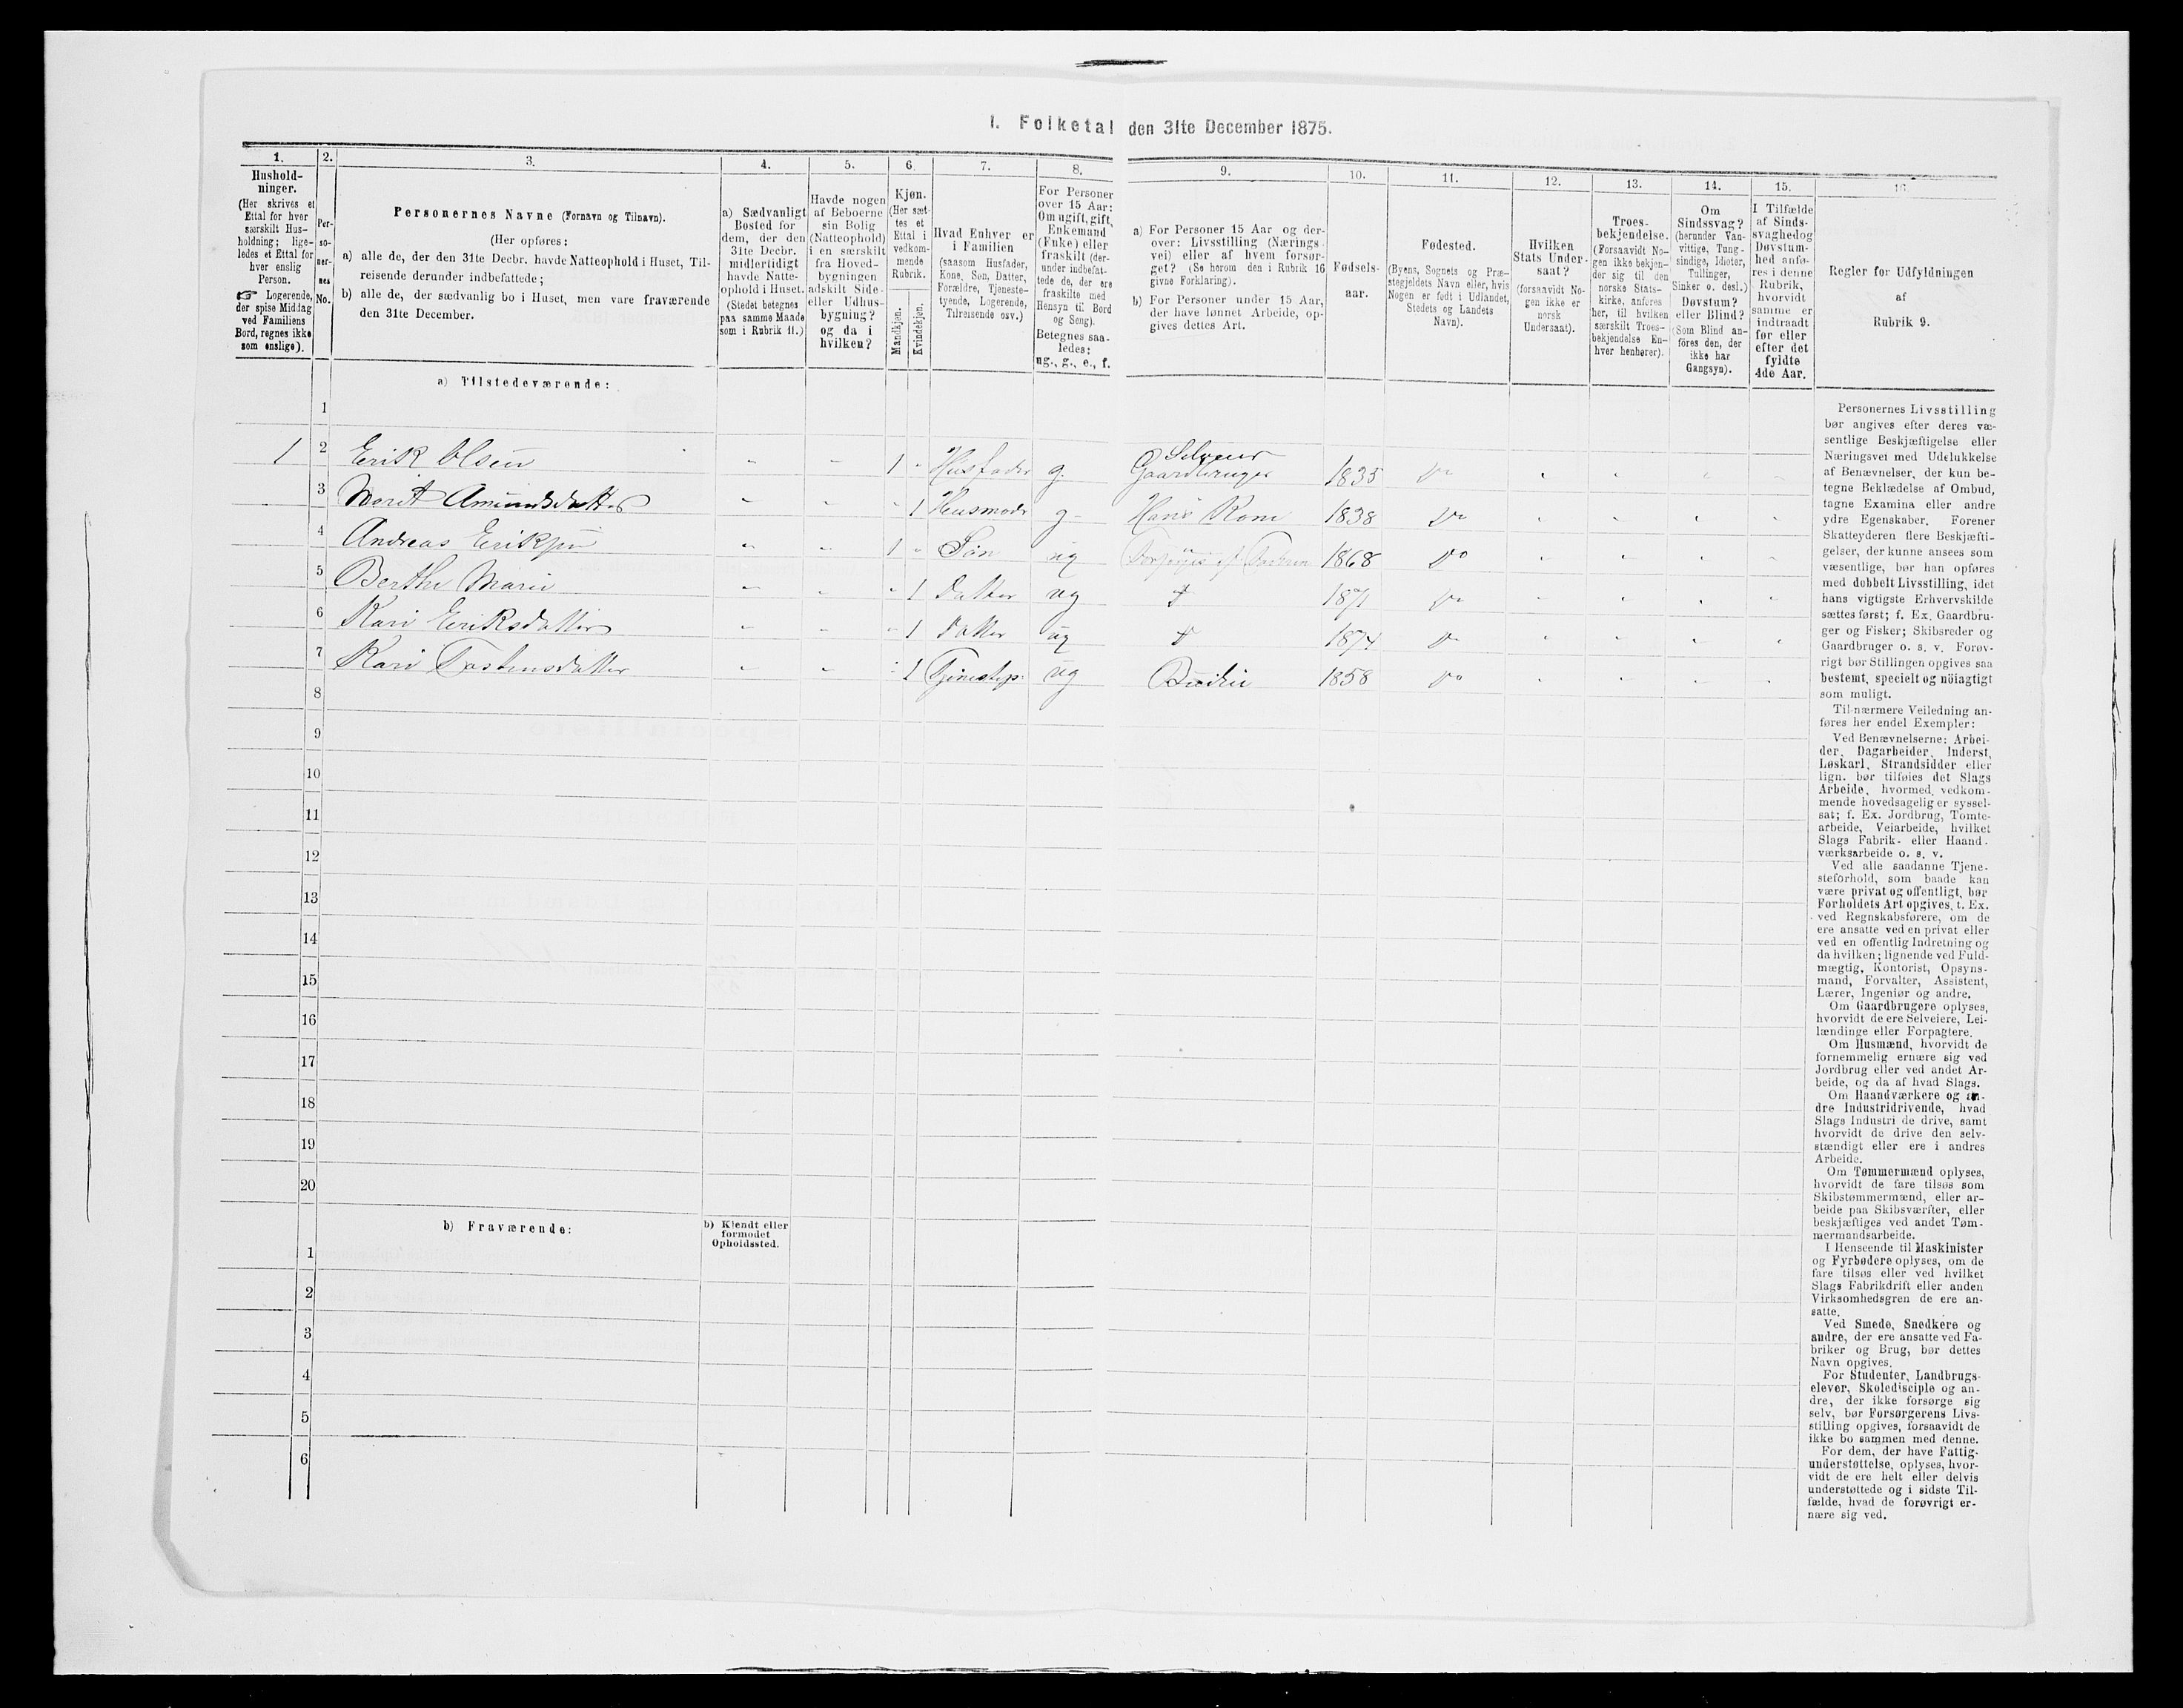 I. Folketal den 31te December 1875.
1.
Hushold-
ninger.
(Her skrives et
Ettal for hver
særskilt Hus-
holdning; lige-
ledes et Ettal for
hver enslig
Person.
☞ Logerende,
der spise Middag
ved Familiens
Bord, regnes ikke
som enslige).
2.
Per-
so-
ner-
nes
No.
3.
Personernes Navne (Fornavn og Tilnavn).
(Her opføres:
a) alle de, der den 31te Decbr. havde Natteophold i Huset, Til-
reisende derunder indbefattede;
b) alle de, der sædvanlig bo i Huset, men vare fraværende
den 31te December.
4.
a) Sædvanligt
Bosted for
dem, der den
31te Decbr.
midlertidigt
havde Natte-
ophold i Huset.
(Stedet betegnes
paa samme Maade
som i Rubrik 11.)
5.
Havde nogen
af Beboerne
sin Bolig
(Natteophold)
i en særskilt
fra Hoved-
bygningen
adskilt Side-
eller Udhus-
bygning?
og da i
hvilken?
6.
Kjøn.
(Her sæt-
tes et
Ettal i
vedkom-
mende
Rubrik.
Mandkjøn.
Kvindekjøn.
7.
Hvad Enhver er
i Familien
(saasom Husfader,
Kone, Søn, Datter,
Forældre, Tjeneste-
tyende, Logerende,
Tilreisende osv.)
8.
For Personer
over 15 Aar:
Om ugift, gift,
Enkemand
(Enke) eller
fraskilt (der-
under indbefat-
tede de, der ere
fraskilte med
Hensyn til Bord
og Seng).
Betegnes saa-
ledes:
ug., g., e., f.
9.
a) For Personer 15 Aar og der-
over: Livsstilling (Nærings-
vei) eller af hvem forsør-
get? (Se herom den i Rubrik 16
givne Forklaring).
b) For Personer under 15 Aar,
der have lønnet Arbeide, op-
gives dettes Art.
10.
Fødsels-
aar.
11.
Fødested.
(Byens, Sognets og Præ-
stegjeldets Navn eller, hvis
Nogen er født i Udlandet,
Stedets og Landets
Navn).
12.
Hvilken
Stats Under-
saat?
(forsaavidt No-
gen ikke er
norsk
Undersaat).
13.
Troes-
bekjendelse.
(Forsaavidt No-
gen ikke bekjen-
der sig til den
norske Stats-
kirke, anføres
her, til hvilken
særskilt Troes-
bekjendelse En-
hver henhører).
14.
Om
Sindssvag?
(herunder Van-
vittige, Tung-
sindige, Idioter,
Tullinger,
Sinker o. desl.)
Døvstum?
eller Blind?
(Som Blind an-
føres den, der
ikke har
Gangsyn).
15.
I Tilfælde
af Sinds-
svaghed og
Døvstum-
hed anfø-
res i denne
Rubrik,
hvorvidt
samme er
indtraadt
før eller
efter det
fyldte
4de Aar.
16.
Regler for Udfyldningen
af
Rubrik 9.
a) Tilstedeværende:
1
1 2 Erik Olsen " " 1 " Husfader g. Selveier Gaardbruger 1835 Do " " " "
3 Marit Amundsdatter " " " 1 Husmoder g. Hans Kone 1838 Do " " " "
4 Andreas Eriksen " " 1 " Søn ug Forsørges af Faderen 1868 Do " " " "
5 Berthe Marie " " " 1 Datter ug 1871 Do " " " "
6 Kari Eriksdatter " " " 1 Datter ug 1874 Do " " " "
7 Kari Tostensdatter " " " 1 Tjenestep. ug Budeie 1858 Do " " " "
8
9
10
11
12
13
14
15
16
17
18
19
20
b) Fraværende:
b) Kjendt eller
formodet
Opholdssted.
1
2
3
4
5
6
Personernes Livsstilling
bør angives efter deres væ-
sentlige Beskjæftigelse eller
Næringsvei med Udelukkelse
af Benævnelser, der kun be-
tegne Beklædelse af Ombud,
tagne Examina eller andre
ydre Egenskaber. Forener
Skatteyderen flere Beskjæfti-
gelser, der kunne ansees som
væsentlige, bør han opføres
med dobbelt Livsstilling, idet
hans vigtigste Erhvervskilde
sættes først; f. Ex. Gaardbru-
ger og Fisker; Skibsreder og
Gaardbruger o. s. v. Forøv-
rigt bør Stillingen opgives saa
bestemt, specielt og nöiagtigt
som muligt.
Til nærmere Veiledning an-
føres her endel Exempler:
Ved Benævnelserne: Arbei-
der, Dagarbeider, Inderst,
Løskarl, Strandsidder eller
lign. bør tilføies det Slags
Arbeide, hvormed vedkom-
mende hovedsagelig er syssel-
sat; f. Ex. Jordbrug, Tomte-
arbeide, Veiarbeide, hvilket
Slags Fabrik- eller Haand-
værksarbeide o. s. v.
Ved alle saadanne Tjene-
steforhold, som baade kan
være privat og offentligt, bør
Forholdets Art opgives, t. Ex.
ved Regnskabsførere, om de
ere ansatte ved en privat eller
ved en offentlig Indretning og
da hvilken; lignende ved Fuld-
mægtig, Kontorist, Opsyns-
mand, Forvalter, Assistent,
Lærer, Ingeniør og andre.
Om Gaardbrugere oplyses,
hvorvidt de ere Selveiere, Lei-
lændinge eller Forpagtere.
Om Husmænd, hvorvidt de
fornemmelig ernære sig ved
Jordbrug eller ved andet Ar-
beide, og da af hvad Slags.
Om Haandværkere og an-
dre Industridrivende, hvad
Slags Industri de drive, samt
hvorvidt de drive den selv-
stændigt eller ere i andres
Arbeide.
Om Tømmermænd oplyses,
hvorvidt de fare tilsøs som
Skibstømmermænd, eller ar-
beide paa Skibsværfter, eller
beskjæftiges ved andet Tøm-
mermandsarbeide.
I Henseende til Maskinister
og Fyrbødere oplyses, om de
fare tilsøs eller ved hvilket
Slags Fabrikdrift eller anden
Virksomhedsgren de ere an-
satte.
Ved Smede, Snedkere og
andre, der ere ansatte ved Fa-
briker og Brug, bør dettes
Navn opgives.
For Studenter, Landbrugs-
elever, Skoledisciple og an-
dre, der ikke forsørge sig
selv, bør Forsørgerens Livs-
stilling opgives, forsaavidt de
ikke bo sammen med denne.
For dem, der have Fattig-
understøttelse, oplyses, hvor-
vidt de ere helt eller delvis
understøttede og i sidste Til-
fælde, hvad de forøvrigt er-
nære sig ved.